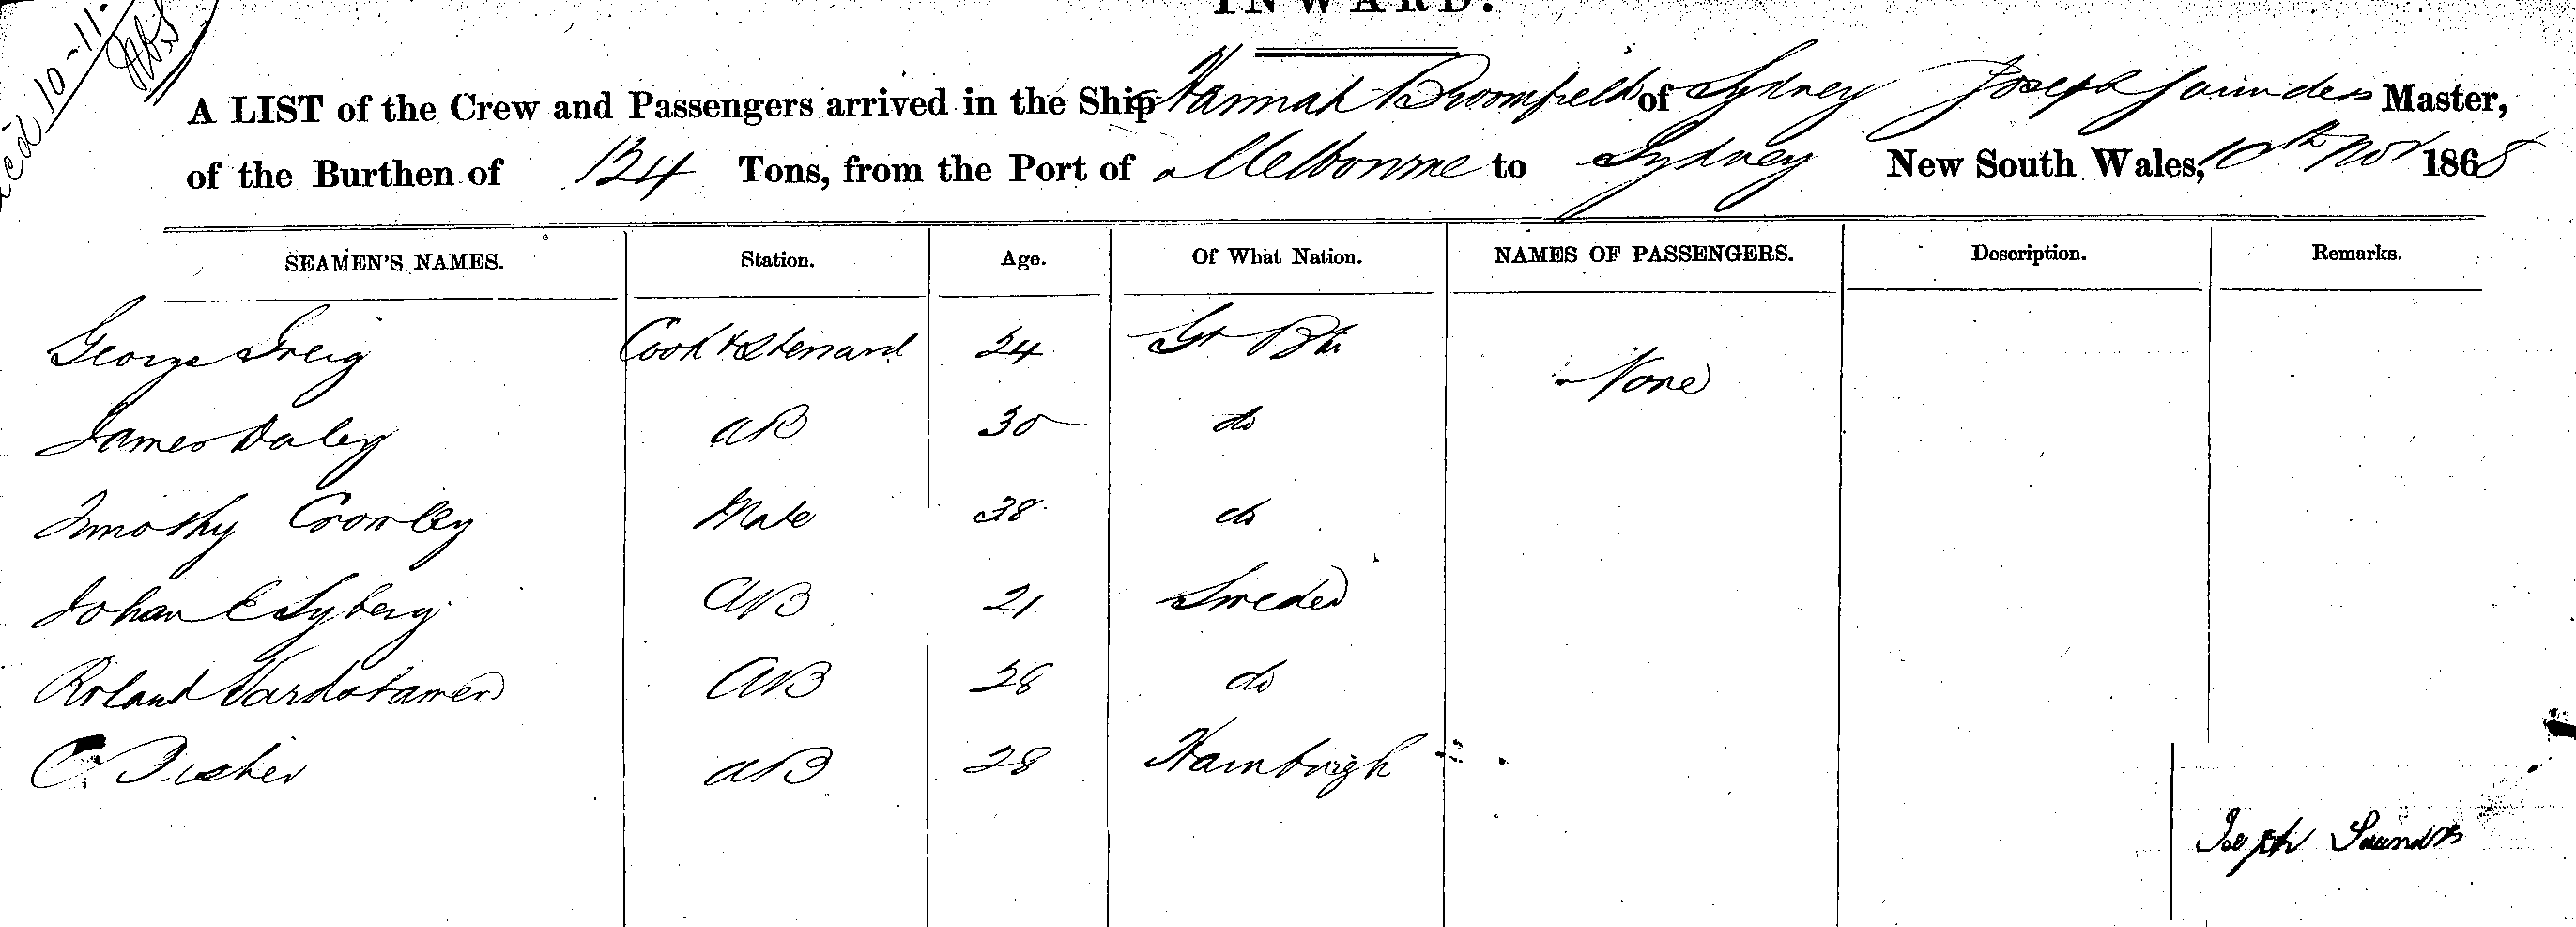 INWARD.
10-11.
A LIST of the Crew and Passengers arrived in the Ship Hannah Broomfield of Sydney Joseph Saunders Master,
of the Burthen of 134 Tons, from the Port of Melbourne to Sydney New South Wales, 10th Nov 1868
SEAMEN'S NAMES. Station. Age. Of What Nation. NAMES OF PASSENGERS. Description. Remarks.
George Greig Cook & Steward 24 Gt Btn
None
James Daley AB 30 do
Timothy Crowley Mate 38 do
Johan E Syberg AB 21 Sweden
Roland AB 28 do
C. Fisher AB 28 Hamburgh
Joseph Saunders